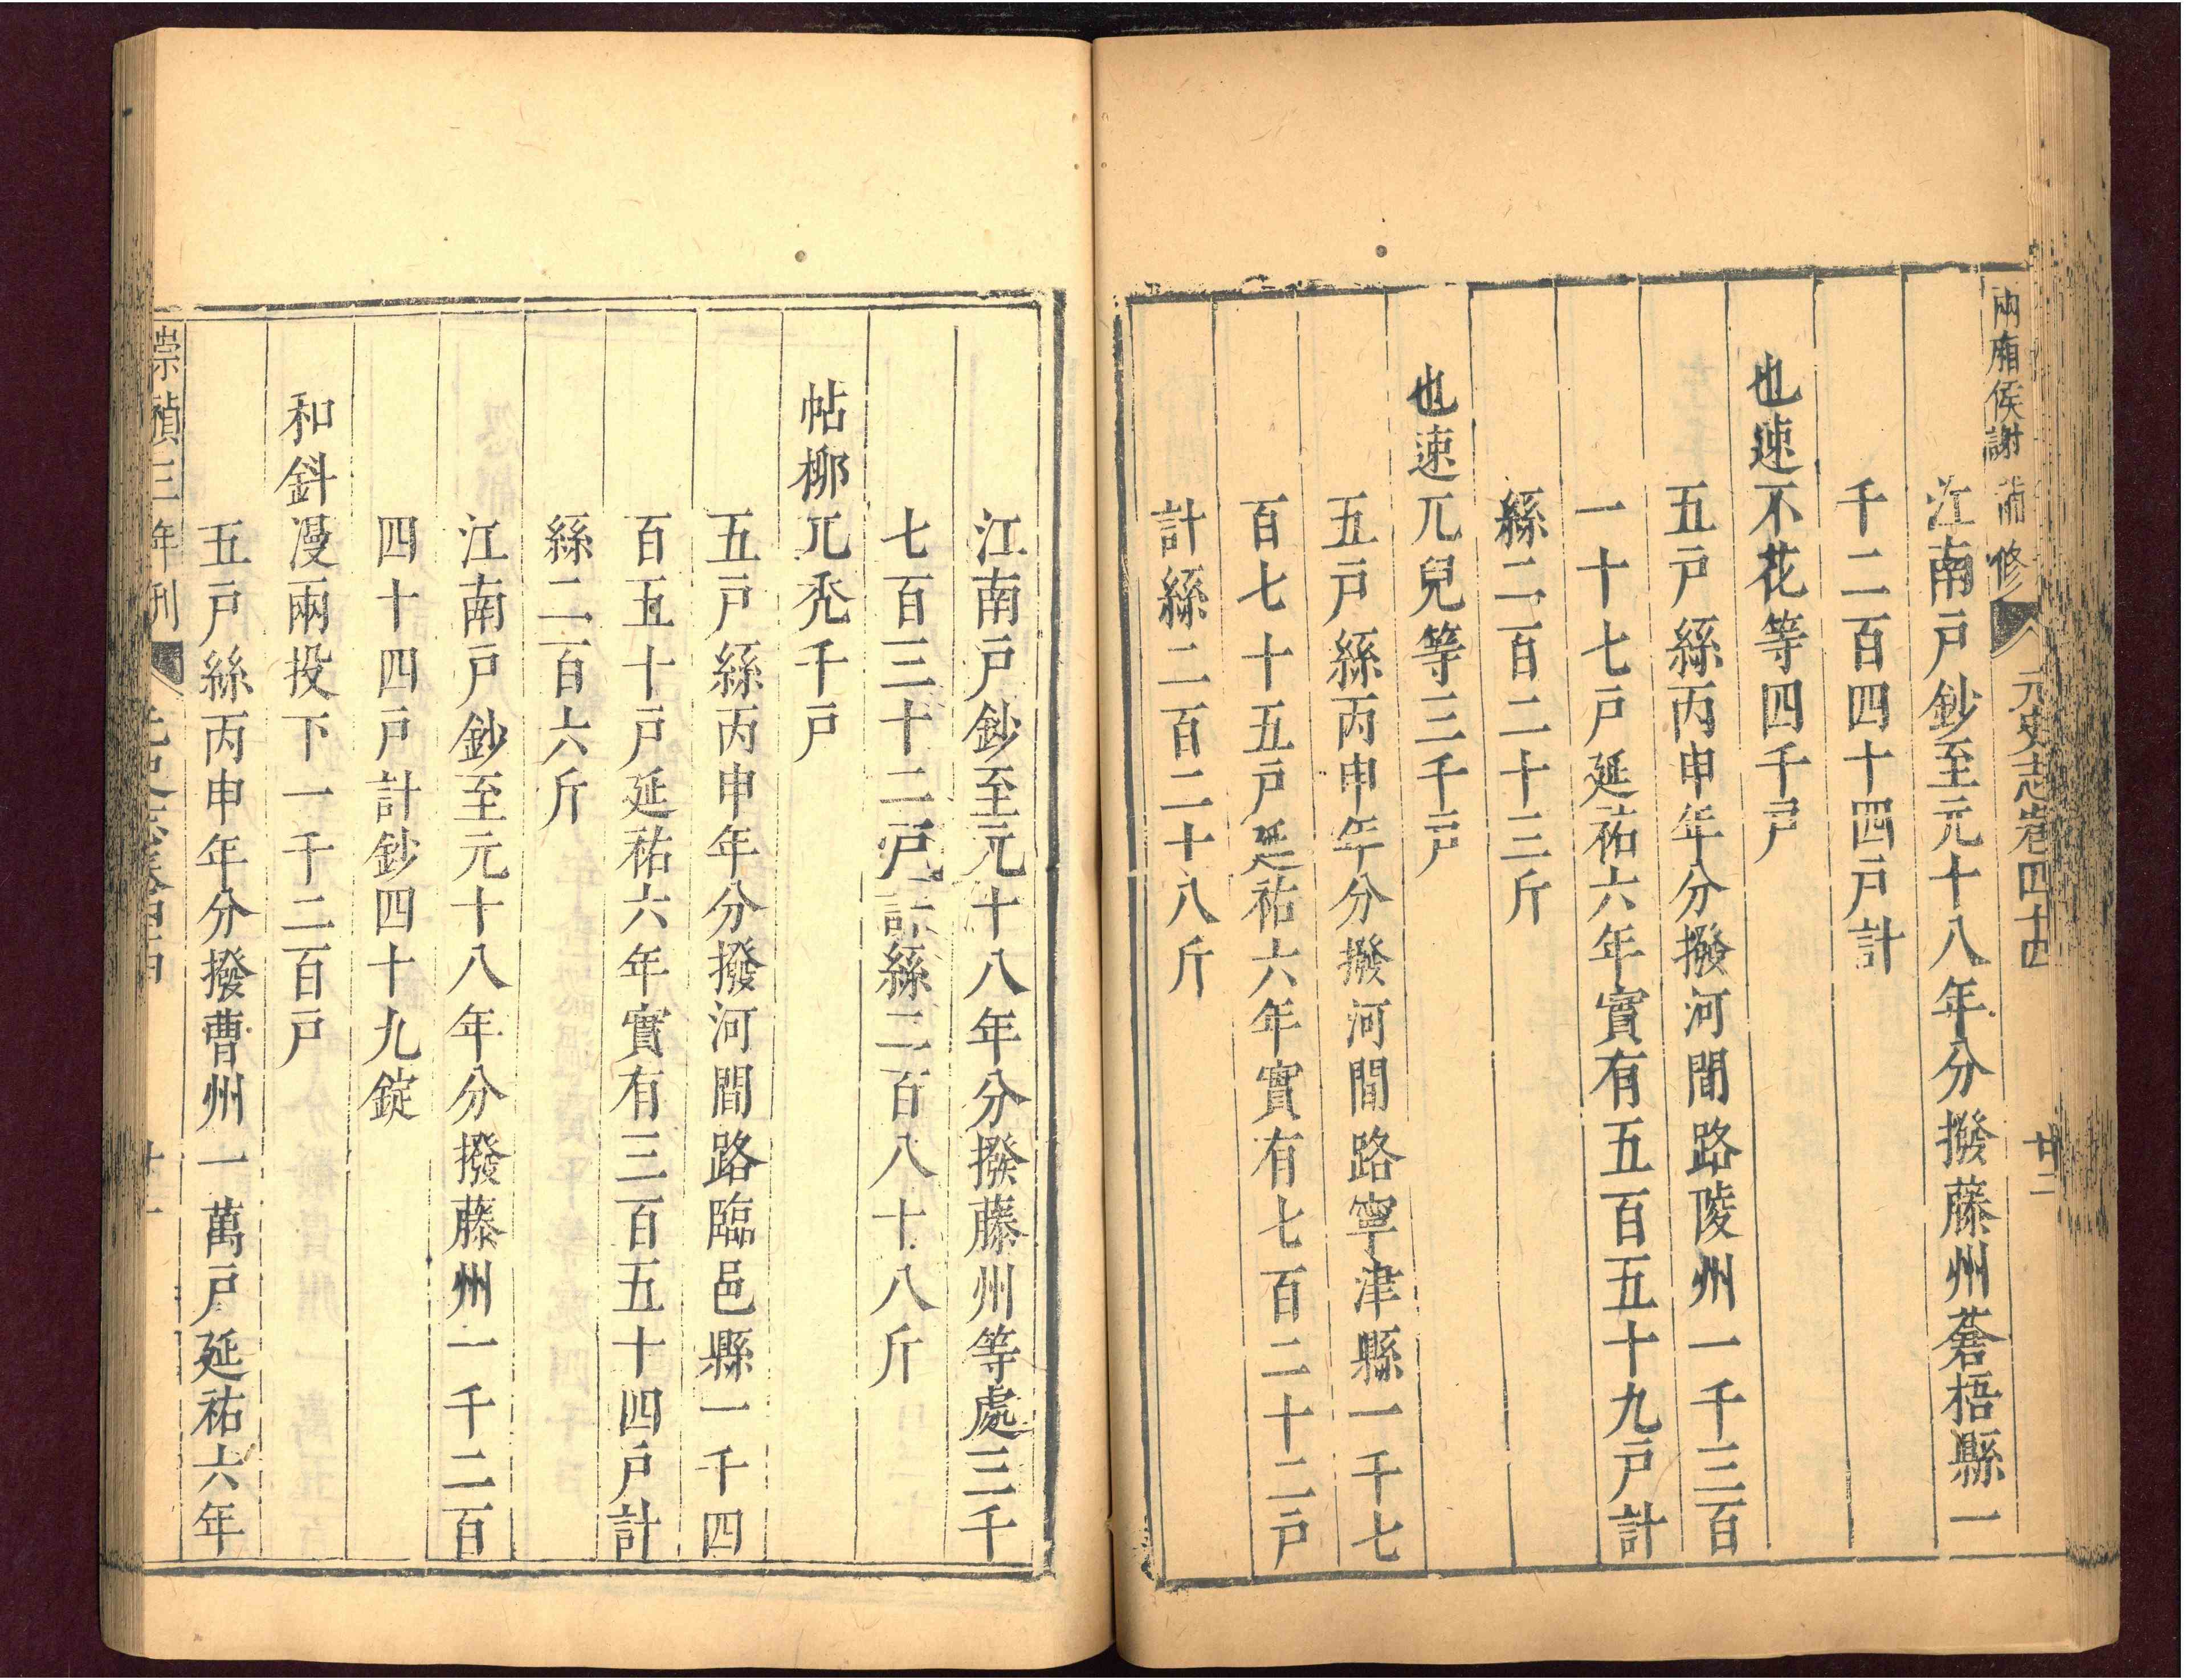 兩廂侯謝 補修 元史志卷四十四 廿二
江南戸鈔至元十八年分撥藤州蒼梧縣一
千二百四十四戸計
也速不花等四千戸
五戸絲丙申年分撥河間路陵州一千三百
一十七戸延祐六年實有五百五十九戸計
絲二百二十三斤
也速兀兒等三千戸
五戸絲丙申年分撥河間路寧津縣一千七
百七十五戸延祐六年實有七百二十二戸
計絲二百二十八斤
江南戸鈔至元十八年分撥藤州等處三千
七百三十二戸計絲二百八十八斤
帖柳兀禿千戸
五戸絲丙申年分撥河間路臨邑縣一千四
百五十戸延祐六年實有三百五十四戸計
絲二百六斤
江南戸鈔至元十八年分撥藤州一千二百
四十四戸計鈔四十九錠
和斜漫兩投下一千二百戸
五戸絲丙申年分撥曹州一萬戸延祐六年
崇禎三年刊